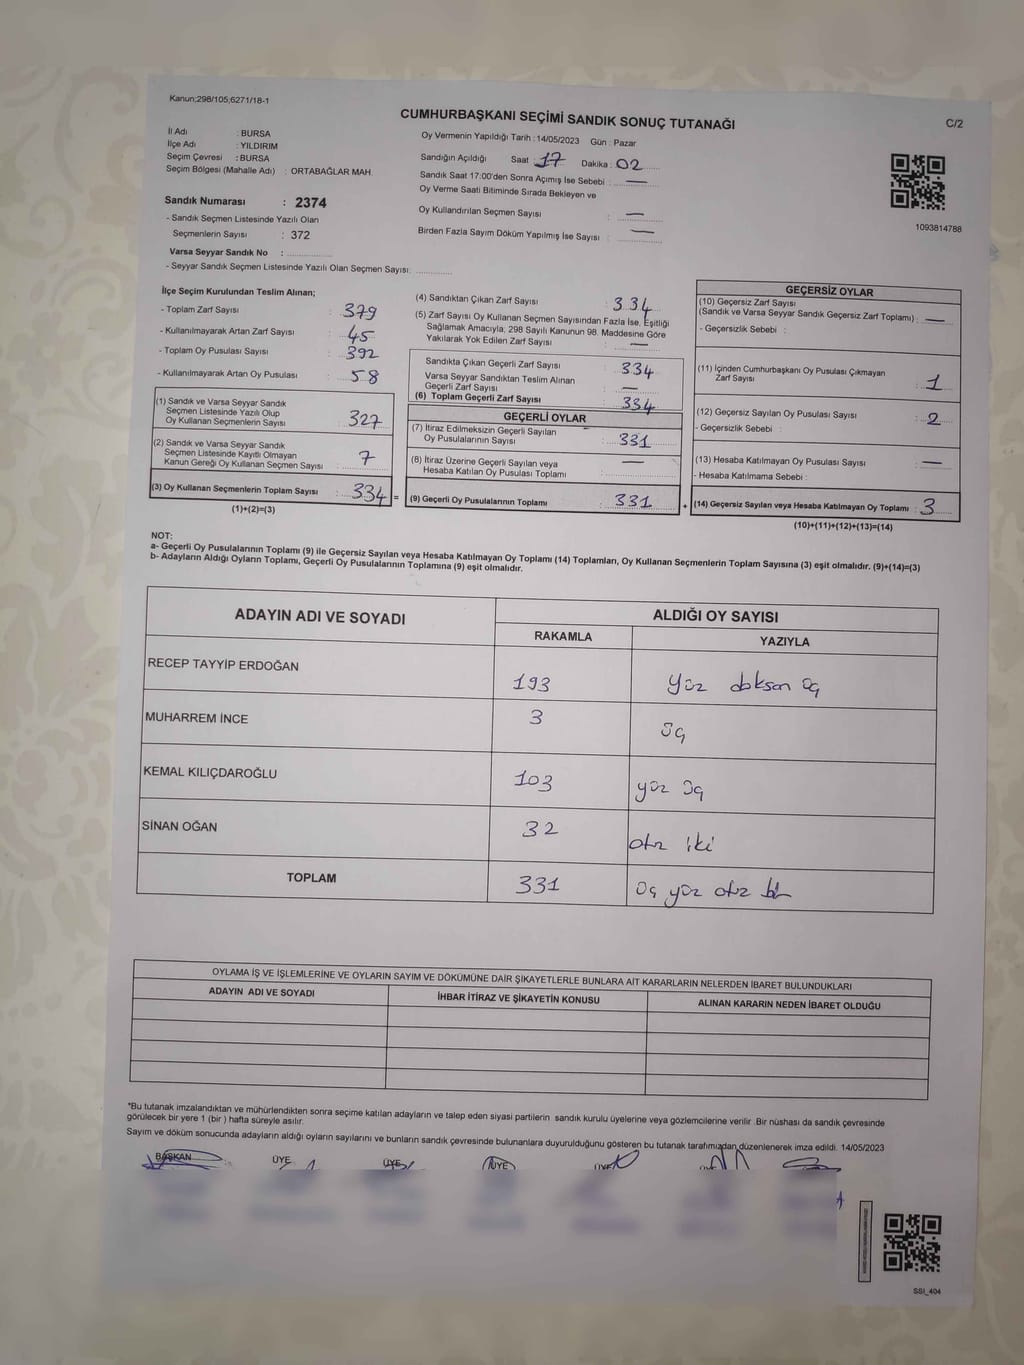 Kanun;298/105;6271/18-1
CUMHURBAŞKANI SEÇİMİ SANDIK SONUÇ TUTANAĞI
C/2
İl Adı : BURSA
İlçe Adı : YILDIRIM
Seçim Çevresi : BURSA
Seçim Bölgesi (Mahalle Adı) : ORTABAĞLAR MAH.
Sandık Numarası : 2374
- Sandık Seçmen Listesinde Yazılı Olan
Seçmenlerin Sayısı : 372
Varsa Seyyar Sandık No :
- Seyyar Sandık Seçmen Listesinde Yazılı Olan Seçmen Sayısı:
Oy Vermenin Yapıldığı Tarih : 14/05/2023 Gün : Pazar
Sandığın Açıldığı Saat : 17 Dakika : 02
Sandık Saat 17:00'den Sonra Açımış İse Sebebi : —
Oy Verme Saati Bitiminde Sırada Bekleyen ve
Oy Kullandırılan Seçmen Sayısı : —
Birden Fazla Sayım Döküm Yapılmış İse Sayısı : —
1093814788
İlçe Seçim Kurulundan Teslim Alınan;
- Toplam Zarf Sayısı : 379
- Kullanılmayarak Artan Zarf Sayısı : 45
- Toplam Oy Pusulası Sayısı : 392
- Kullanılmayarak Artan Oy Pusulası : 58
(1) Sandık ve Varsa Seyyar Sandık
Seçmen Listesinde Yazılı Olup
Oy Kullanan Seçmenlerin Sayısı : 327
(2) Sandık ve Varsa Seyyar Sandık
Seçmen Listesinde Kayıtlı Olmayan
Kanun Gereği Oy Kullanan Seçmen Sayısı : 7
(3) Oy Kullanan Seçmenlerin Toplam Sayısı : 334 =
(1)+(2)=(3)
(4) Sandıktan Çıkan Zarf Sayısı : 334
(5) Zarf Sayısı Oy Kullanan Seçmen Sayısından Fazla İse, Eşitliği
Sağlamak Amacıyla; 298 Sayılı Kanunun 98. Maddesine Göre
Yakılarak Yok Edilen Zarf Sayısı : —
Sandıkta Çıkan Geçerli Zarf Sayısı : 334
Varsa Seyyar Sandıktan Teslim Alınan
Geçerli Zarf Sayısı : —
(6) Toplam Geçerli Zarf Sayısı : 334
GEÇERLİ OYLAR
(7) İtiraz Edilmeksizin Geçerli Sayılan
Oy Pusulalarının Sayısı : 331
(8) İtiraz Üzerine Geçerli Sayılan veya
Hesaba Katılan Oy Pusulası Toplamı : —
(9) Geçerli Oy Pusulalarının Toplamı : 331 +
GEÇERSİZ OYLAR
(10) Geçersiz Zarf Sayısı
(Sandık ve Varsa Seyyar Sandık Geçersiz Zarf Toplamı) : —
- Geçersizlik Sebebi :
(11) İçinden Cumhurbaşkanı Oy Pusulası Çıkmayan
Zarf Sayısı : 1
(12) Geçersiz Sayılan Oy Pusulası Sayısı : 2
- Geçersizlik Sebebi :
(13) Hesaba Katılmayan Oy Pusulası Sayısı : —
- Hesaba Katılmama Sebebi :
(14) Geçersiz Sayılan veya Hesaba Katılmayan Oy Toplamı : 3
(10)+(11)+(12)+(13)=(14)
NOT:
a- Geçerli Oy Pusulalarının Toplamı (9) ile Geçersiz Sayılan veya Hesaba Katılmayan Oy Toplamı (14) Toplamları, Oy Kullanan Seçmenlerin Toplam Sayısına (3) eşit olmalıdır. (9)+(14)=(3)
b- Adayların Aldığı Oyların Toplamı, Geçerli Oy Pusulalarının Toplamına (9) eşit olmalıdır.
ADAYIN ADI VE SOYADI
ALDIĞI OY SAYISI
RAKAMLA YAZIYLA
RECEP TAYYİP ERDOĞAN 193 yüz doksan üç
MUHARREM İNCE 3 üç
KEMAL KILIÇDAROĞLU 103 yüz üç
SİNAN OĞAN 32 otuz iki
TOPLAM 331 üç yüz otuz bir
OYLAMA İŞ VE İŞLEMLERİNE VE OYLARIN SAYIM VE DÖKÜMÜNE DAİR ŞİKAYETLERLE BUNLARA AİT KARARLARIN NELERDEN İBARET BULUNDUKLARI
ADAYIN ADI VE SOYADI İHBAR İTİRAZ VE ŞİKAYETİN KONUSU ALINAN KARARIN NEDEN İBARET OLDUĞU
*Bu tutanak imzalandıktan ve mühürlendikten sonra seçime katılan adayların ve talep eden siyasi partilerin sandık kurulu üyelerine veya gözlemcilerine verilir. Bir nüshası da sandık çevresinde
görülecek bir yere 1 (bir ) hafta süreyle asılır.
Sayım ve döküm sonucunda adayların aldığı oyların sayılarını ve bunların sandık çevresinde bulunanlara duyurulduğunu gösteren bu tutanak tarafımızdan düzenlenerek imza edildi. 14/05/2023
BAŞKAN ÜYE ÜYE ÜYE ÜYE
SSI_404